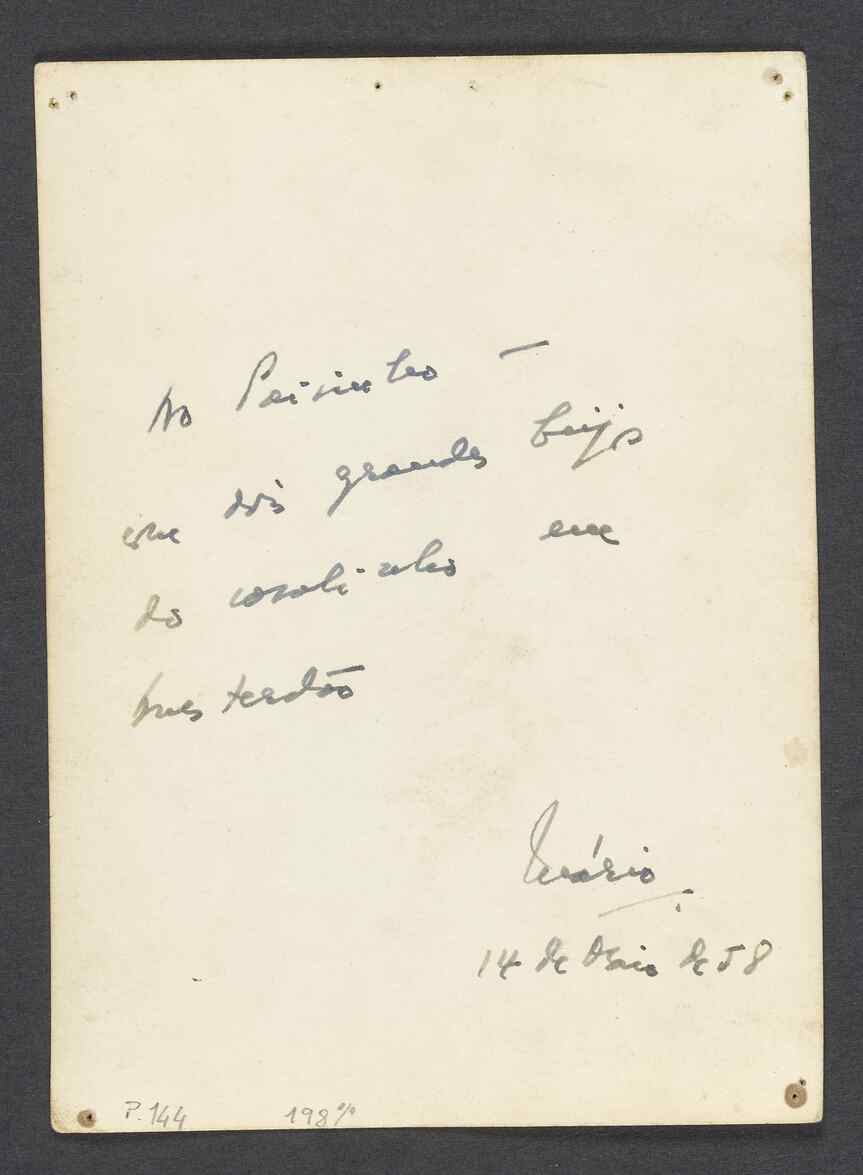 Ao Paisinho —
com dois grandes beijos
do casalinho em
Amsterdão
Mário.
14 de Maio de 58
P. 144 198%